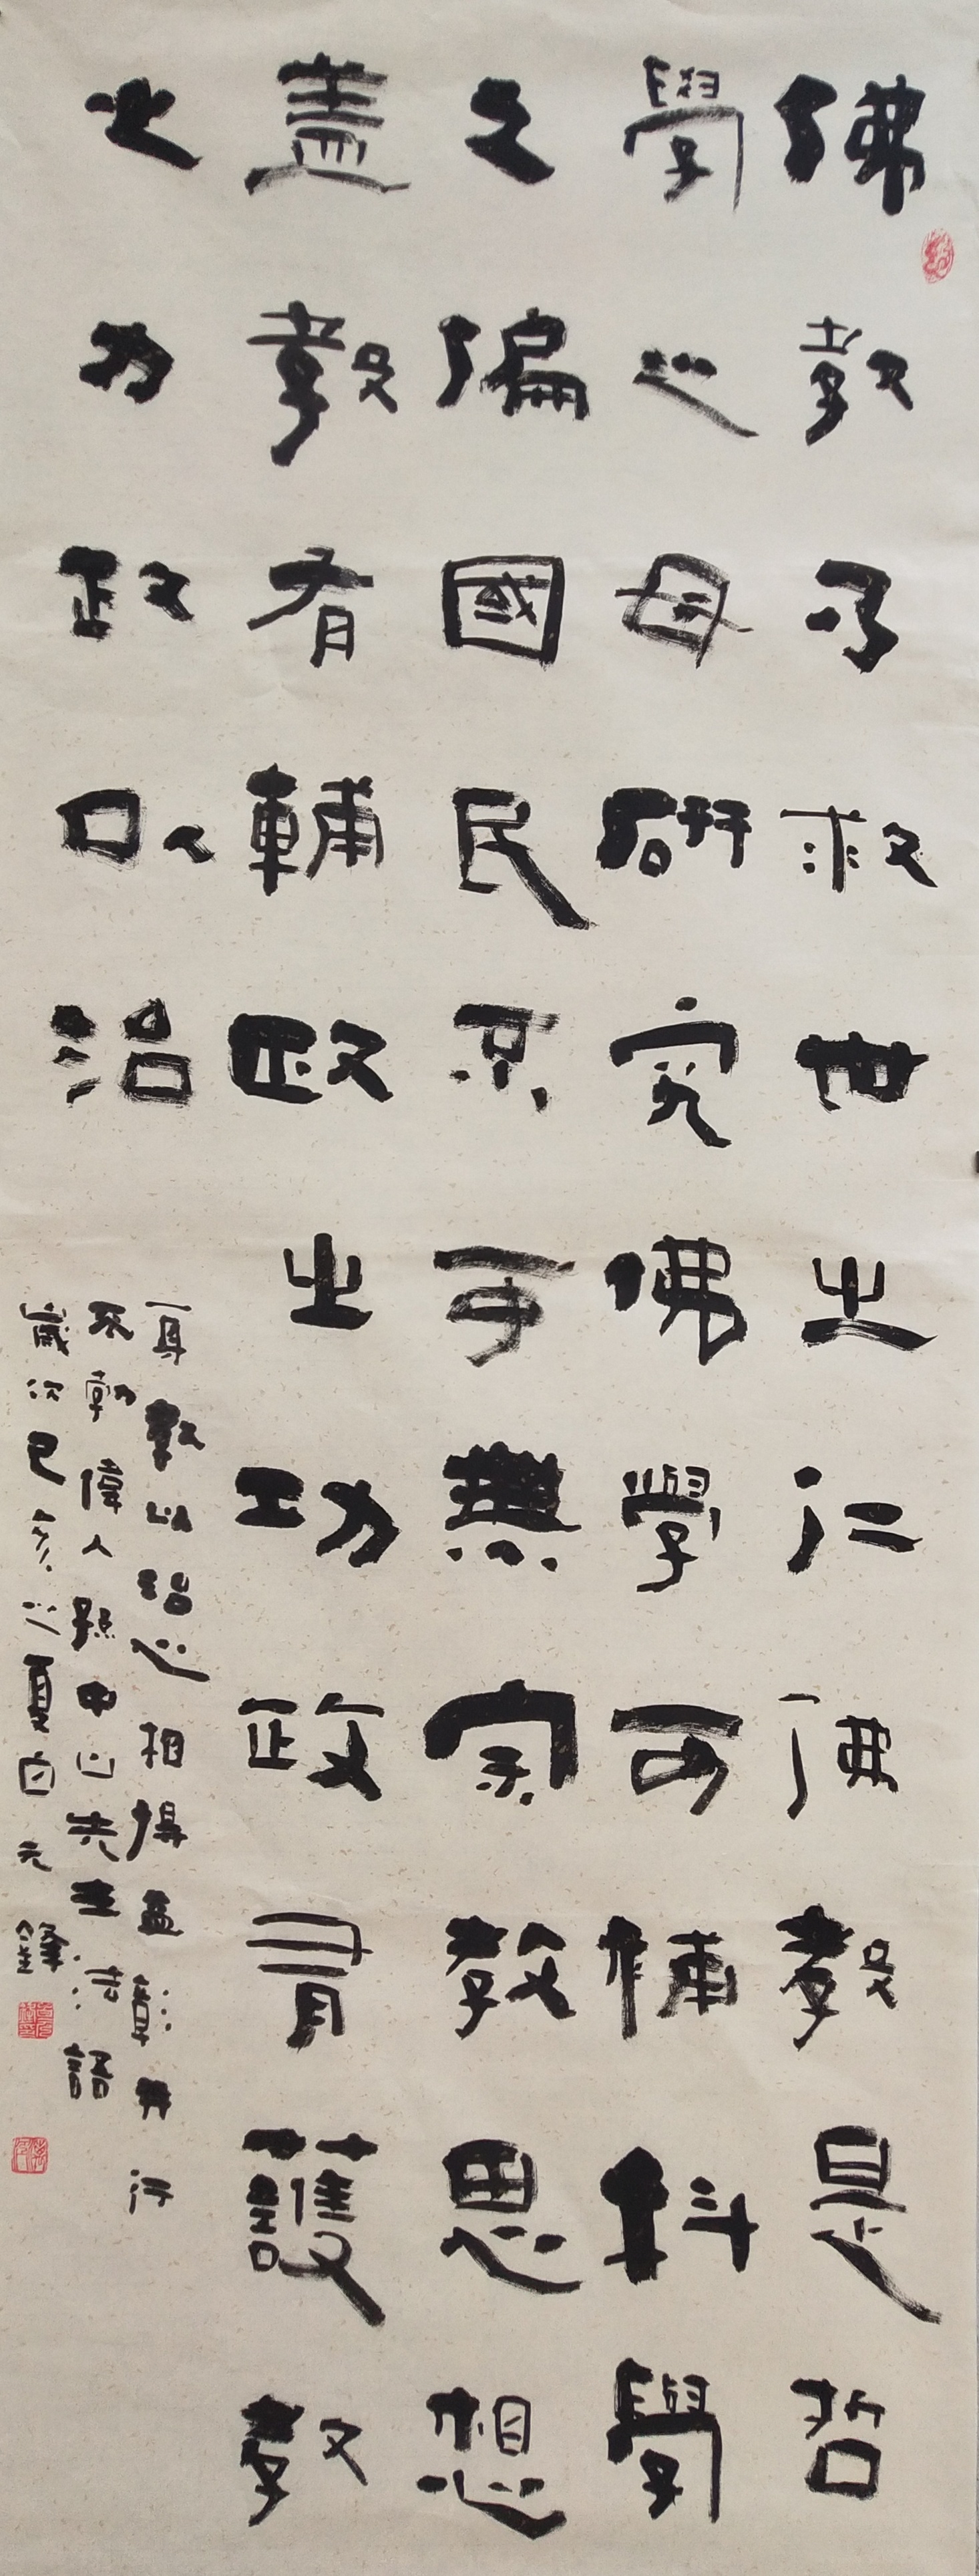 佛教乃救世之仁佛教是哲
學之母研究佛學可補科學
之偏國民不可無宗教思想
蓋教有輔政之功政有護教
之力政以治
身教以治心相得益彰並行
不勃偉人孫中山先生法語
歲次己亥之夏白元鋒